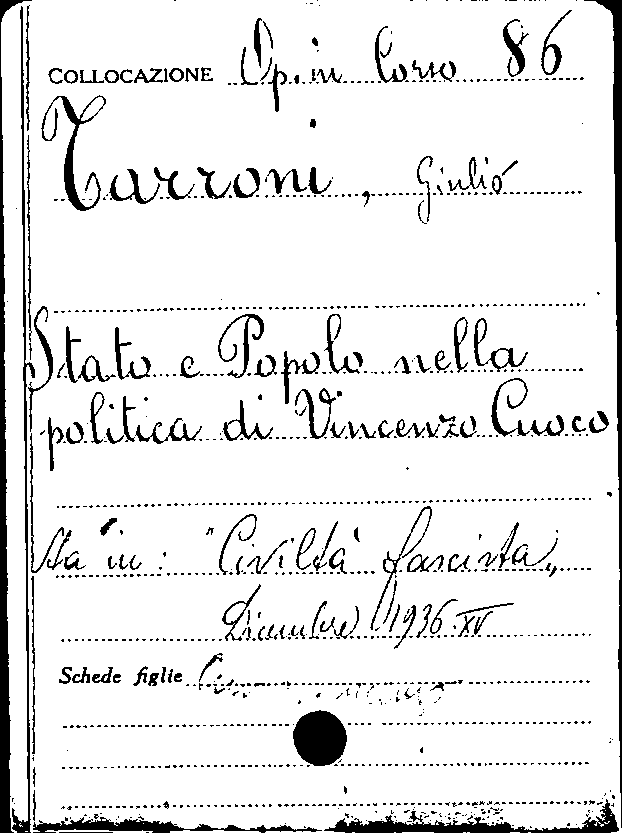 COLLOCAZIONE Op. in Corso 86
Tarroni, Giulio
Stato e Popolo nella
politica di Vincenzo Cuoco
Sta in: "Civiltà fascista„
Dicembre 1936-XV
Schede figlie